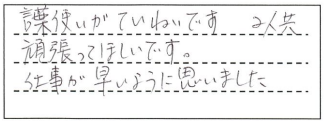 言葉使いがていねいです　2人共
頑張ってほしいです。
仕事が早いように思いました